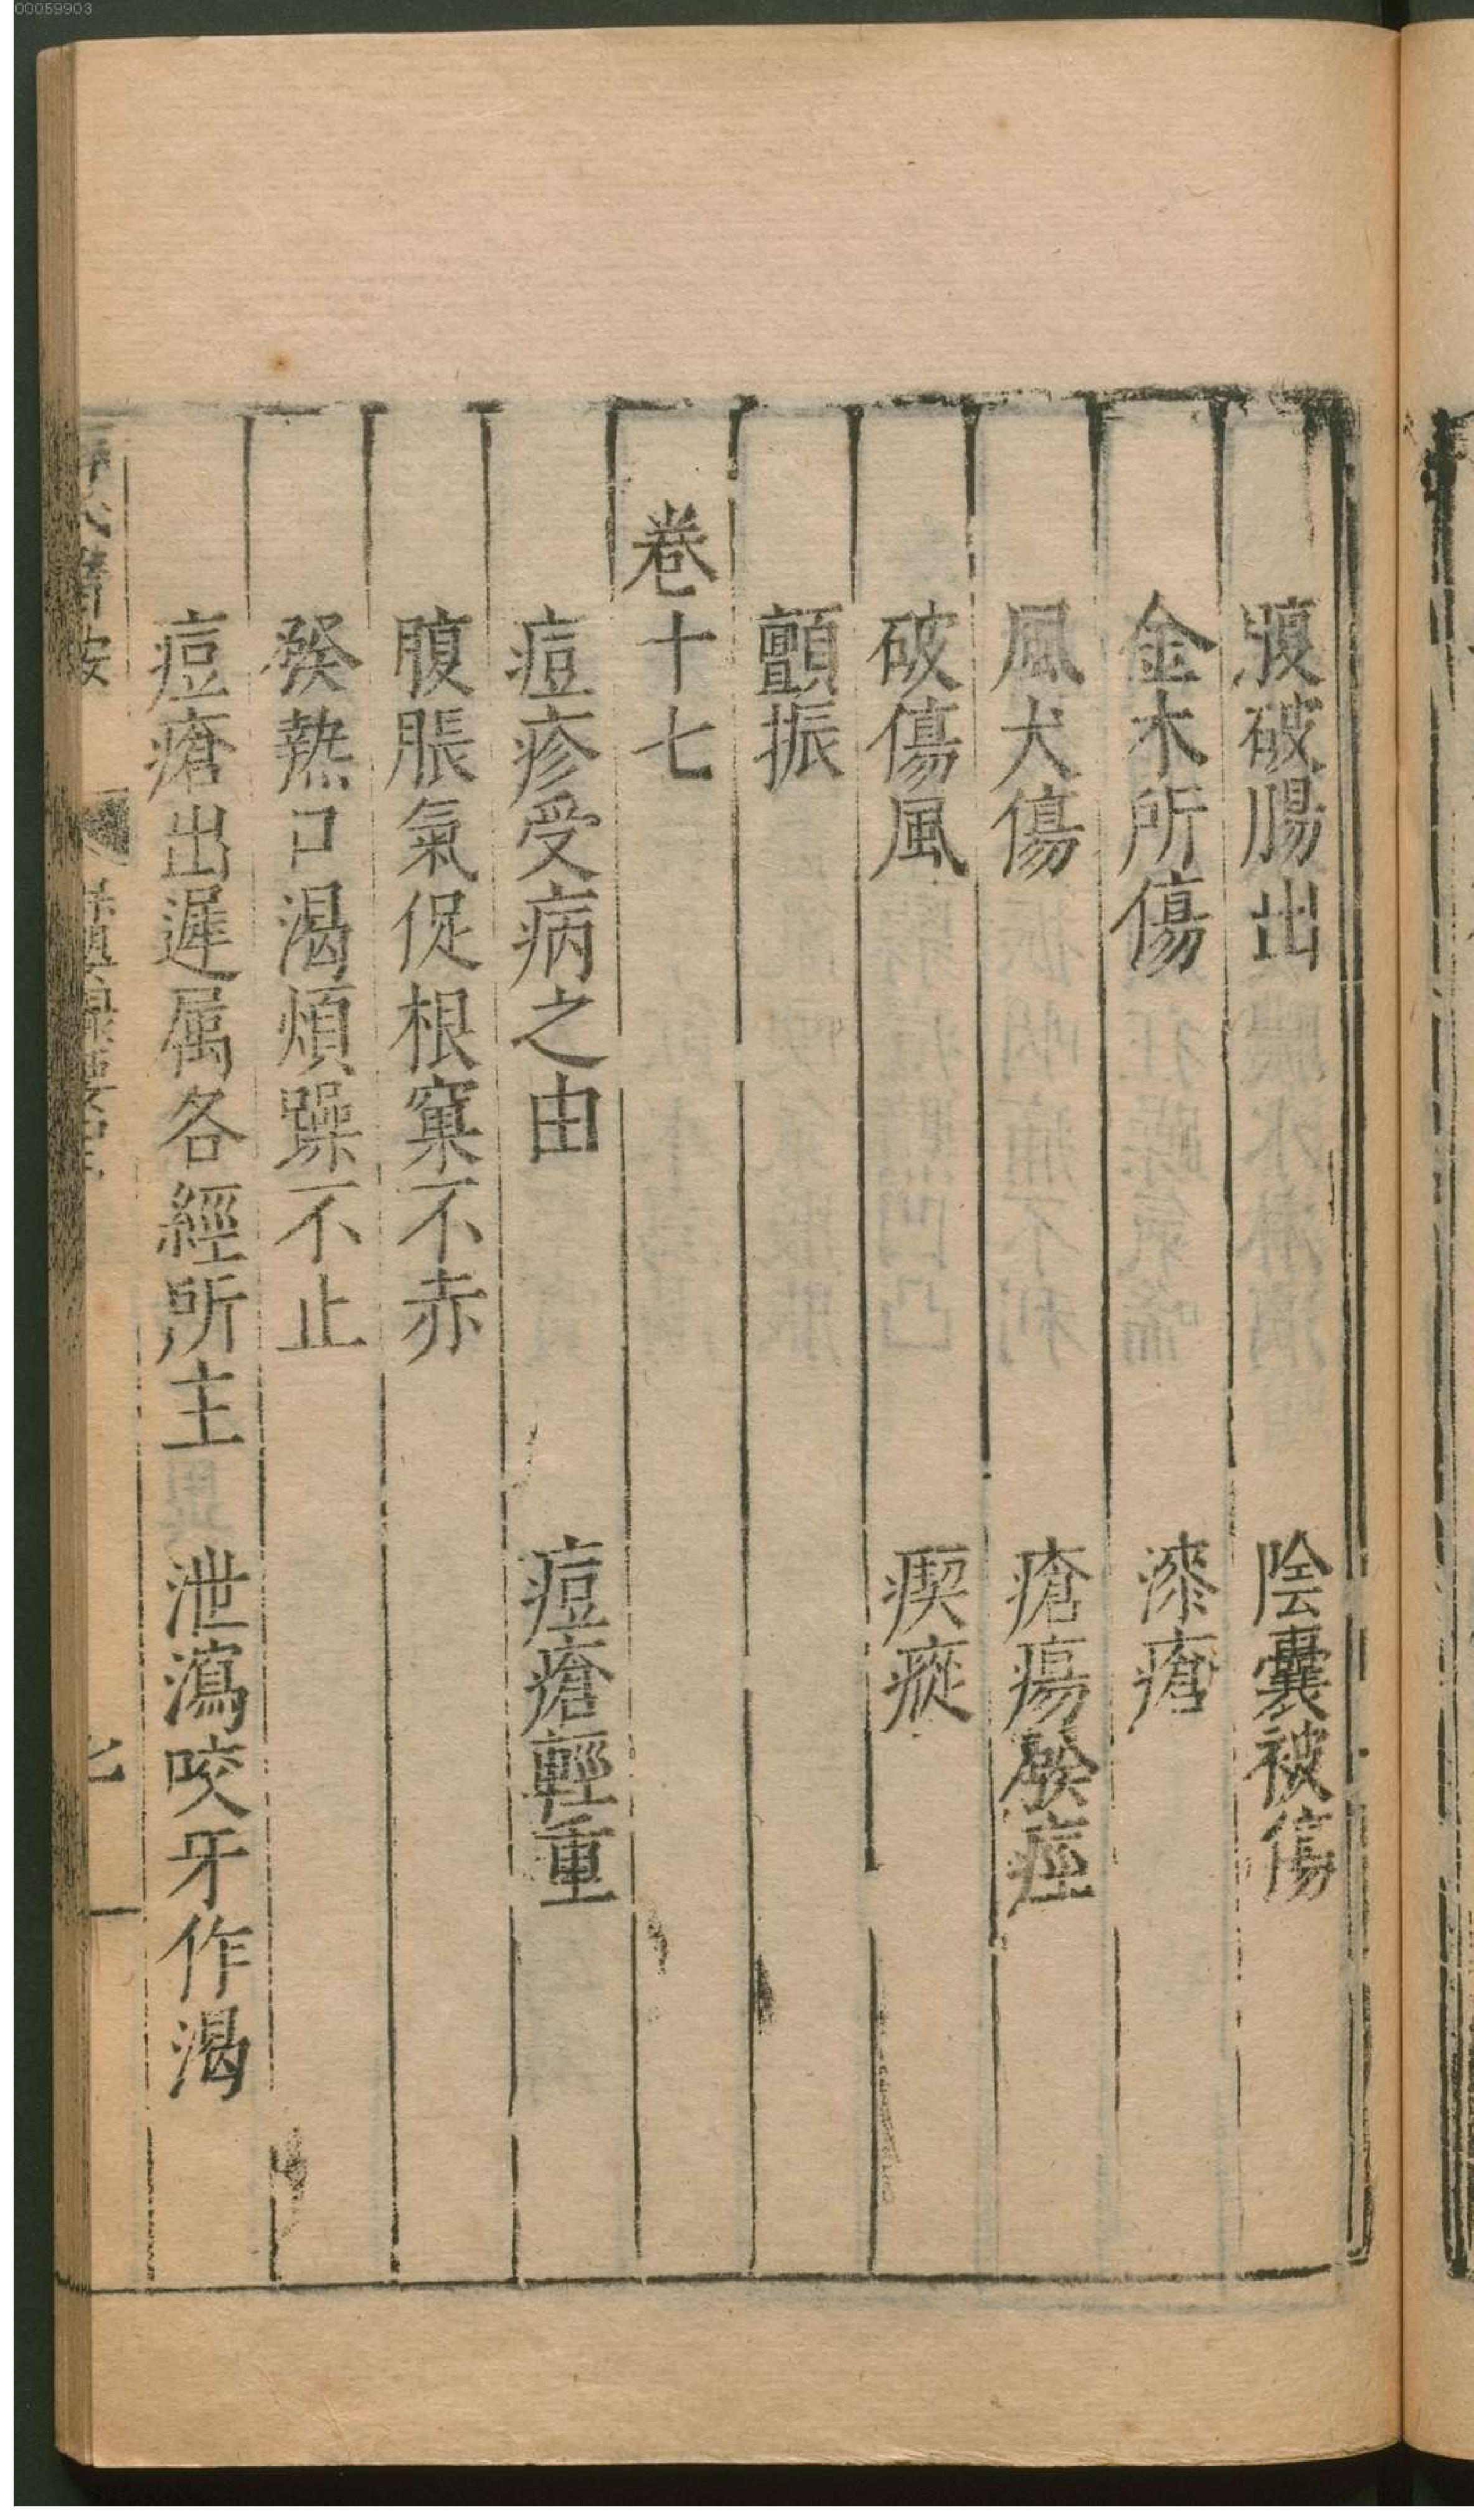 00059903
腹破腸出　陰囊被傷
金木所傷　漆瘡
風犬傷　瘡瘍發痙
破傷風　瘈瘲
顫振
卷十七
痘疹受病之由　痘瘡輕重
腹脹氣促根窠不赤
發熱口渴煩躁不止
痘瘡出遲属各經所主　泄瀉咬牙作渴